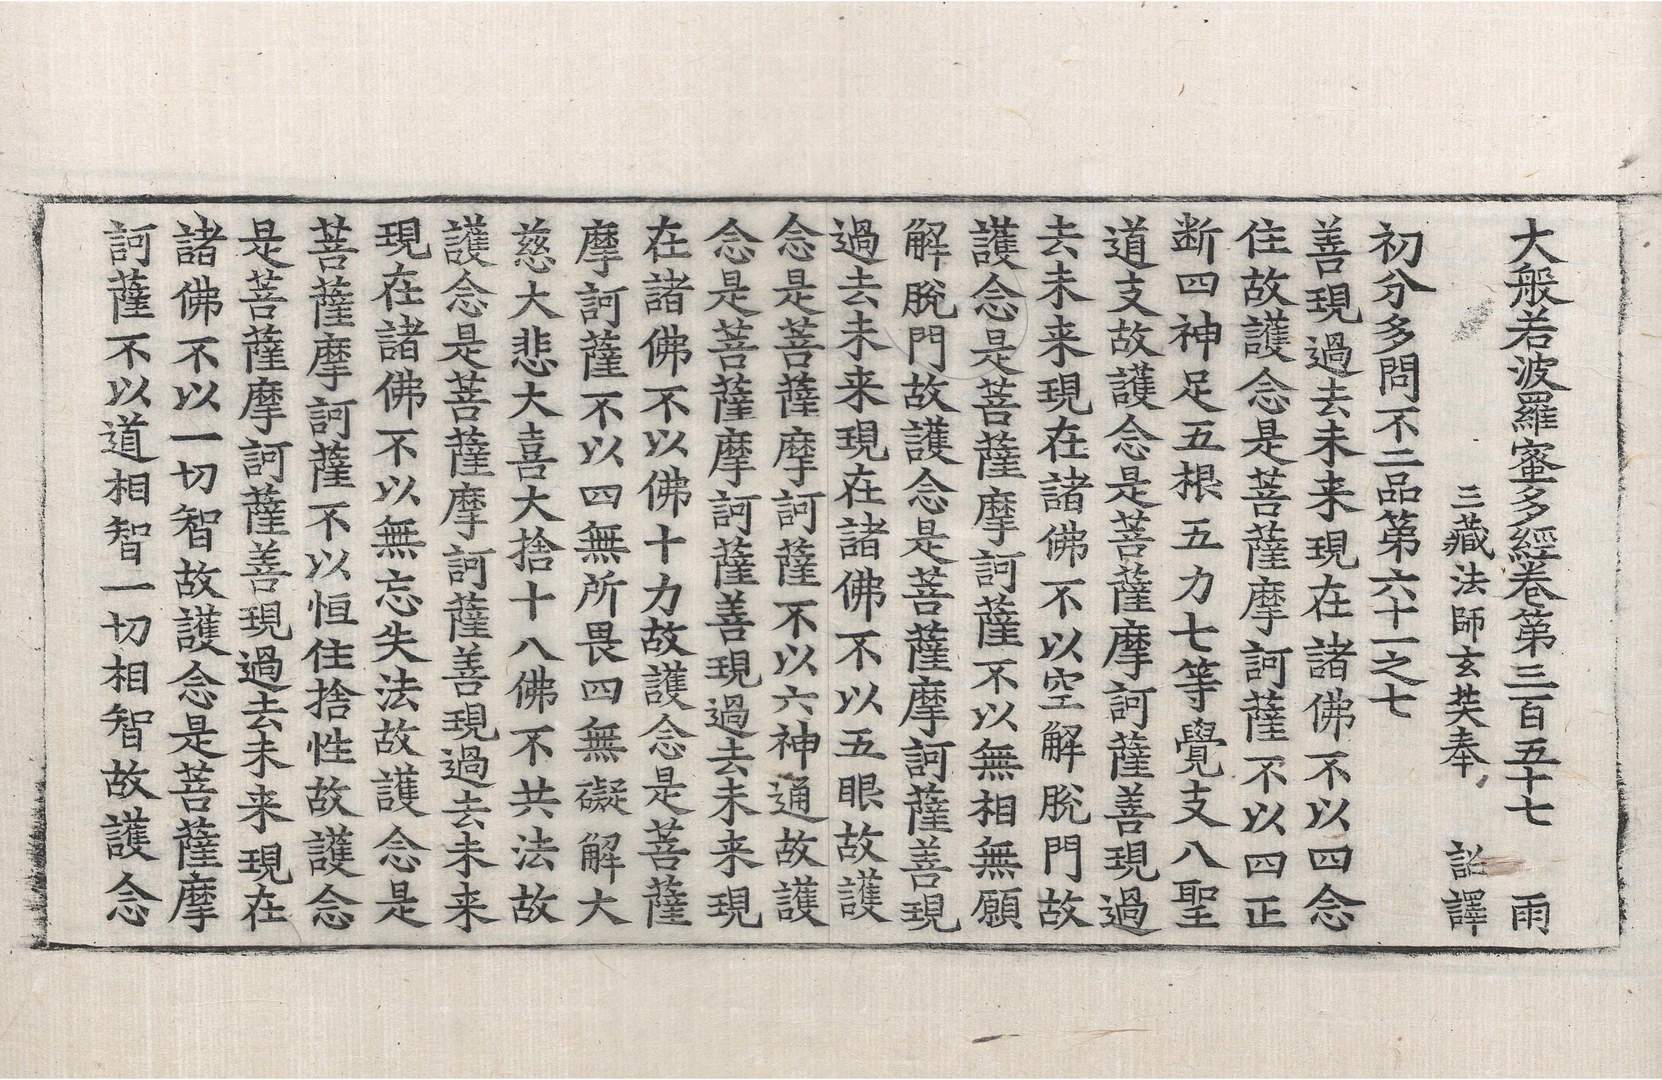 大般若波羅蜜多經卷第三百五十七　雨
三藏法師玄奘奉　詔譯
初分多問不二品第六十一之七
善現過去未来現在諸佛不以四念
住故護念是菩薩摩訶薩不以四正
断四神足五根五力七等覺支八聖
道支故護念是菩薩摩訶薩善現過
去未来現在諸佛不以空解脫門故
護念是菩薩摩訶薩不以無相無願
解脫門故護念是菩薩摩訶薩善現
過去未来現在諸佛不以五眼故護
念是菩薩摩訶薩不以六神通故護
念是菩薩摩訶薩善現過去未来現
在諸佛不以佛十力故護念是菩薩
摩訶薩不以四無所畏四無礙解大
慈大悲大喜大捨十八佛不共法故
護念是菩薩摩訶薩善現過去未来
現在諸佛不以無忘失法故護念是
菩薩摩訶薩不以恒住捨性故護念
是菩薩摩訶薩善現過去未来現在
諸佛不以一切智故護念是菩薩摩
訶薩不以道相智一切相智故護念